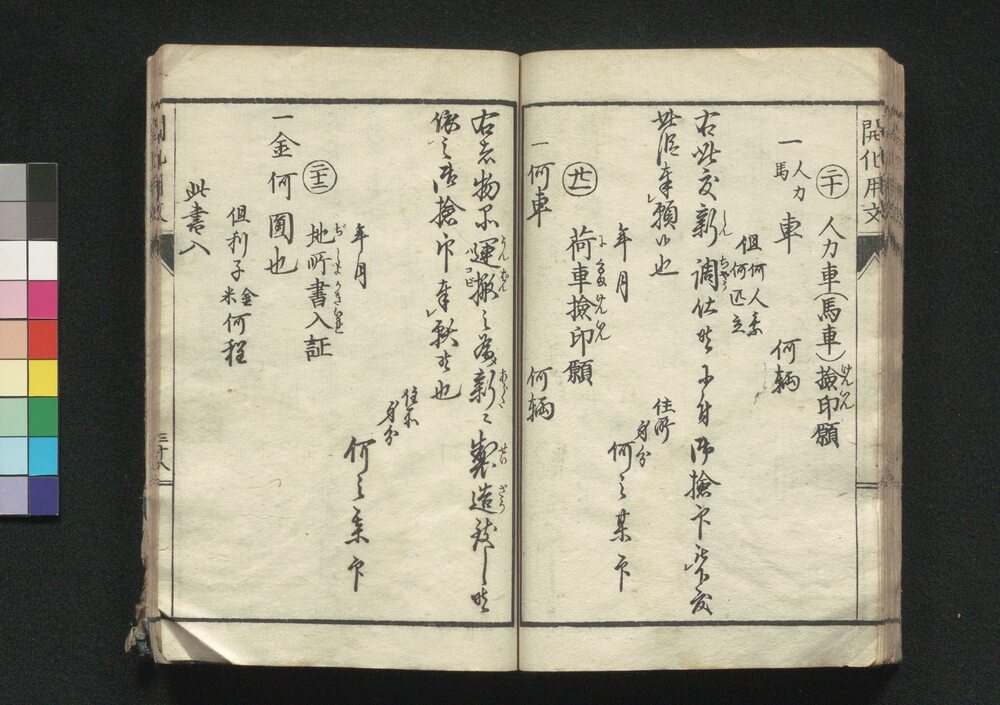 開化用文
二十 人力車(馬車)撿印願
一 人力 馬 車 何輌
但 何人乗 何匹立
右此度新調仕候ニ付御撿印被下度
此段奉願候也
年月
住所
身分
何之某印
廿一 荷車撿印願
一何車 何輌
右者物品運搬之為新ニ製造致し候
依之御撿印奉願候也
年月
住所
身分
何之某印
二十二 地所書入証
一金何圓也
但利子金何程
米
此書入
三十八